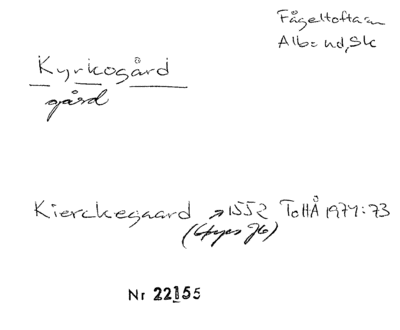 Fågeltofta sn
Alb= hd, Sk
Kyrkogård
gård
Kierckegaard → 1552 ToHÅ 1974:73
Nr 22155